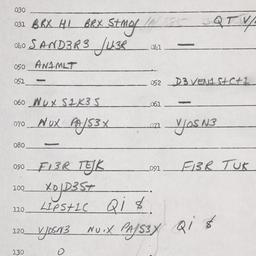 030
031 BRX HI BRX STMO/ QT V/
060 SAND3R3 JU3R 061 —
050 AN1MLT
051 — 052 D3VEN1St+C+1
060 NUX S1K3S 061 —
070 NUX PA/S3X 071 V/OSN3
080 —
090 FI3R TE/K 091 FI3R TUK
100 XO/D3St
110 L1PSt1C Qi $
120 V/OSN3 NU·X PA/S3X Qi $
130 0